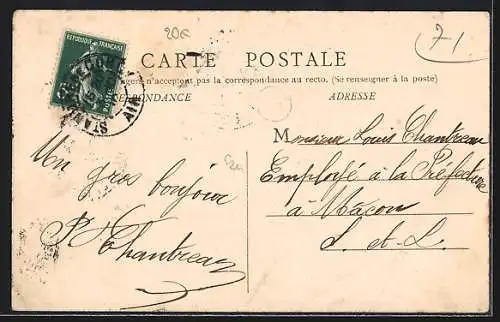 20c
71
RÉPUBLIQUE FRANÇAISE
POSTES
AIN
CARTE POSTALE
n'acceptent pas la correspondance au recto. (Se renseigner à la poste)
ADRESSE
Un gros bonjour
Chantreau
Monsieur Louis Chantreau
Employé à la Préfecture
à Mâcon
S.-et-L.